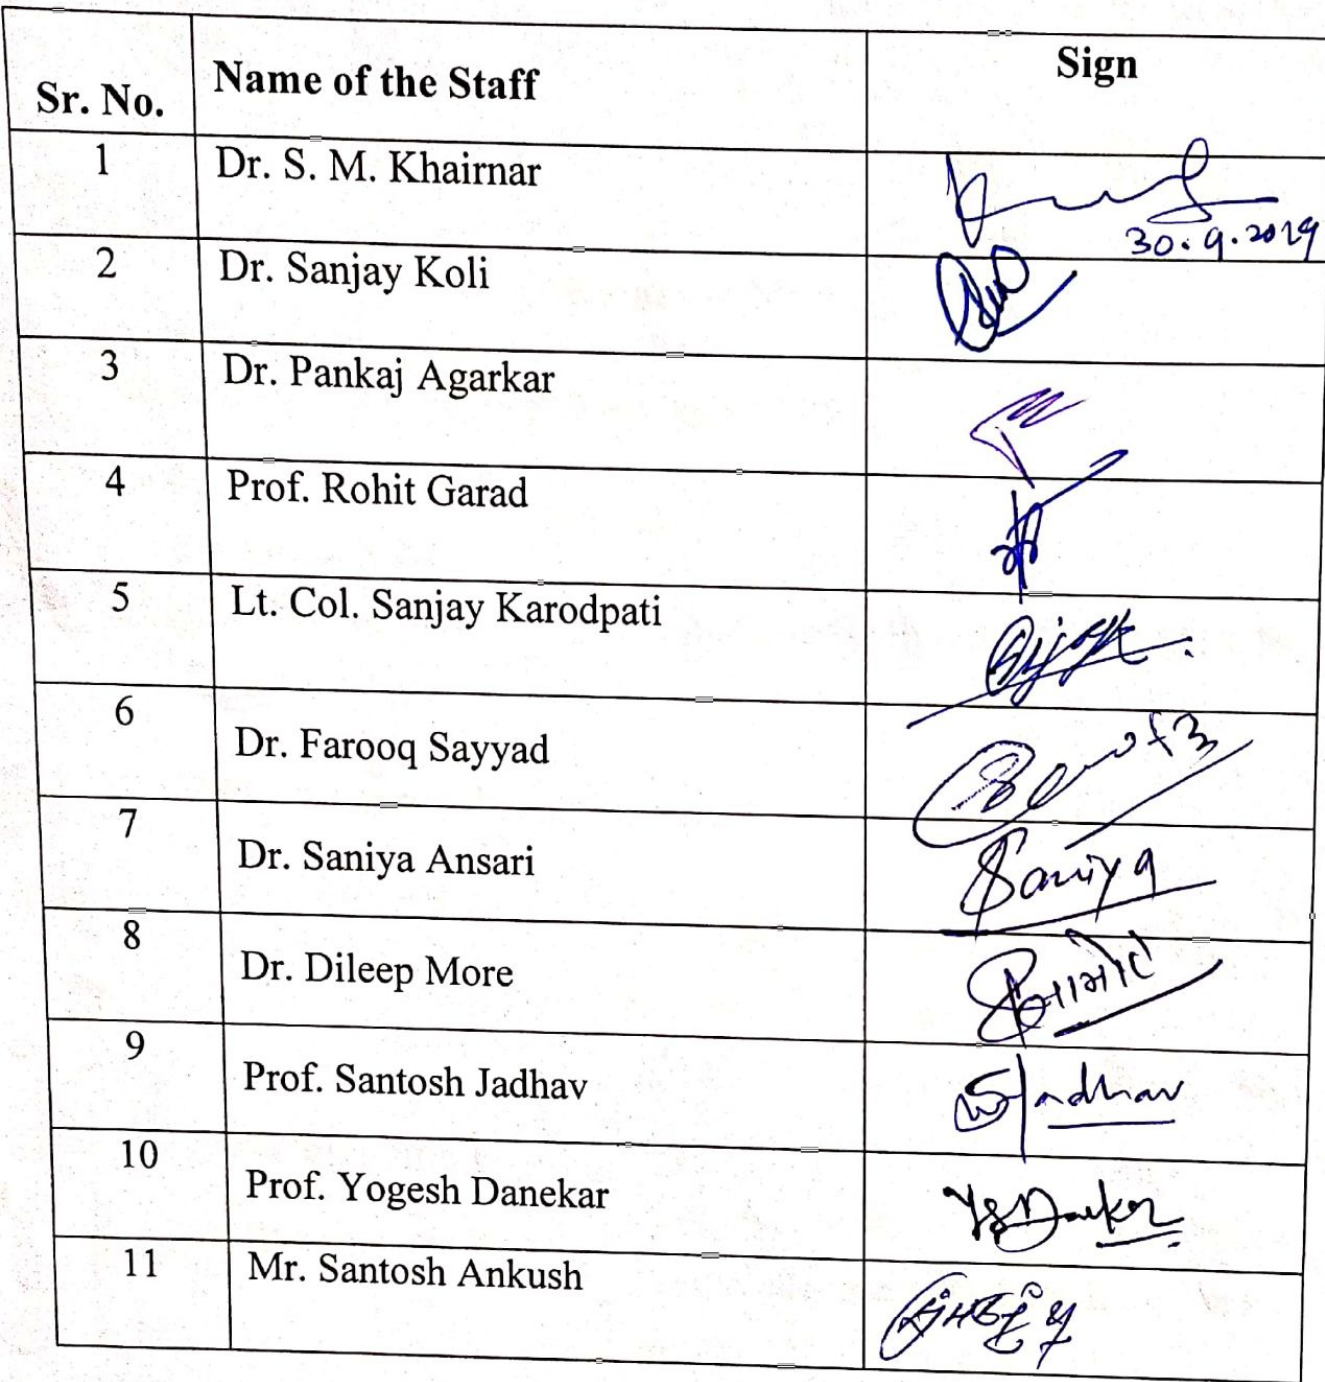 Sr. No. Name of the Staff Sign
1 Dr. S. M. Khairnar
30.9.2019
2 Dr. Sanjay Koli
3 Dr. Pankaj Agarkar
4 Prof. Rohit Garad
5 Lt. Col. Sanjay Karodpati
6 Dr. Farooq Sayyad
7 Dr. Saniya Ansari Saniya
8 Dr. Dileep More
9 Prof. Santosh Jadhav SJadhav
10 Prof. Yogesh Danekar
11 Mr. Santosh Ankush